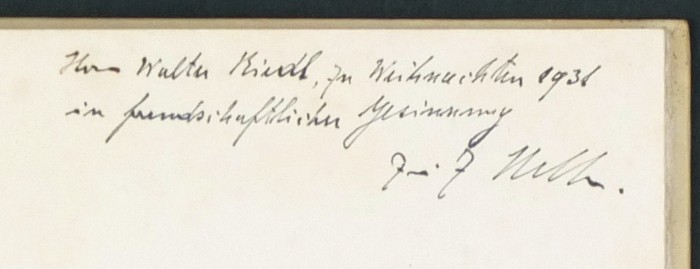 Herrn Walter Riedl, zu Weihnachten 1931
in freundschaftlicher Gesinnung